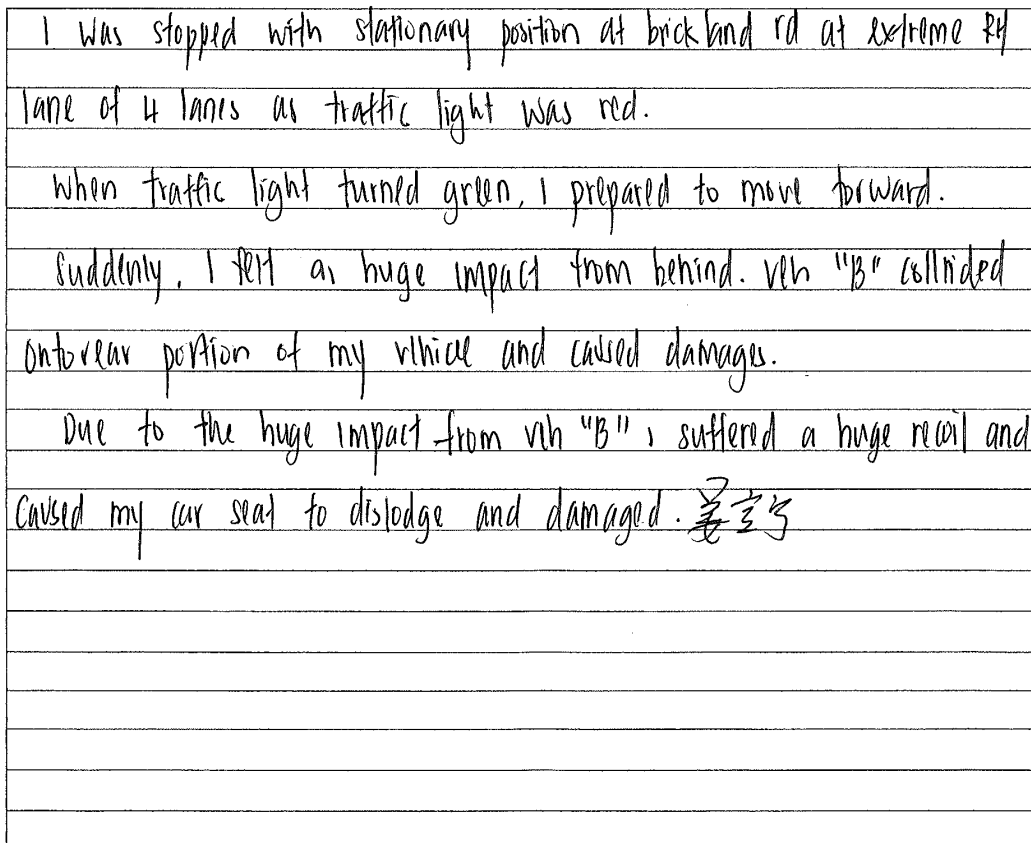 I was stopped with stationary position at brickland rd at extreme RH
lane of 4 lanes as traffic light was red.
When traffic light turned green, I prepared to move forward.
Suddenly, I felt a huge impact from behind. veh "B" collrided
onto rear portion of my vehicle and caused damages.
Due to the huge impact from veh "B" I suffered a huge recoil and
caused my car seat to dislodge and damaged.